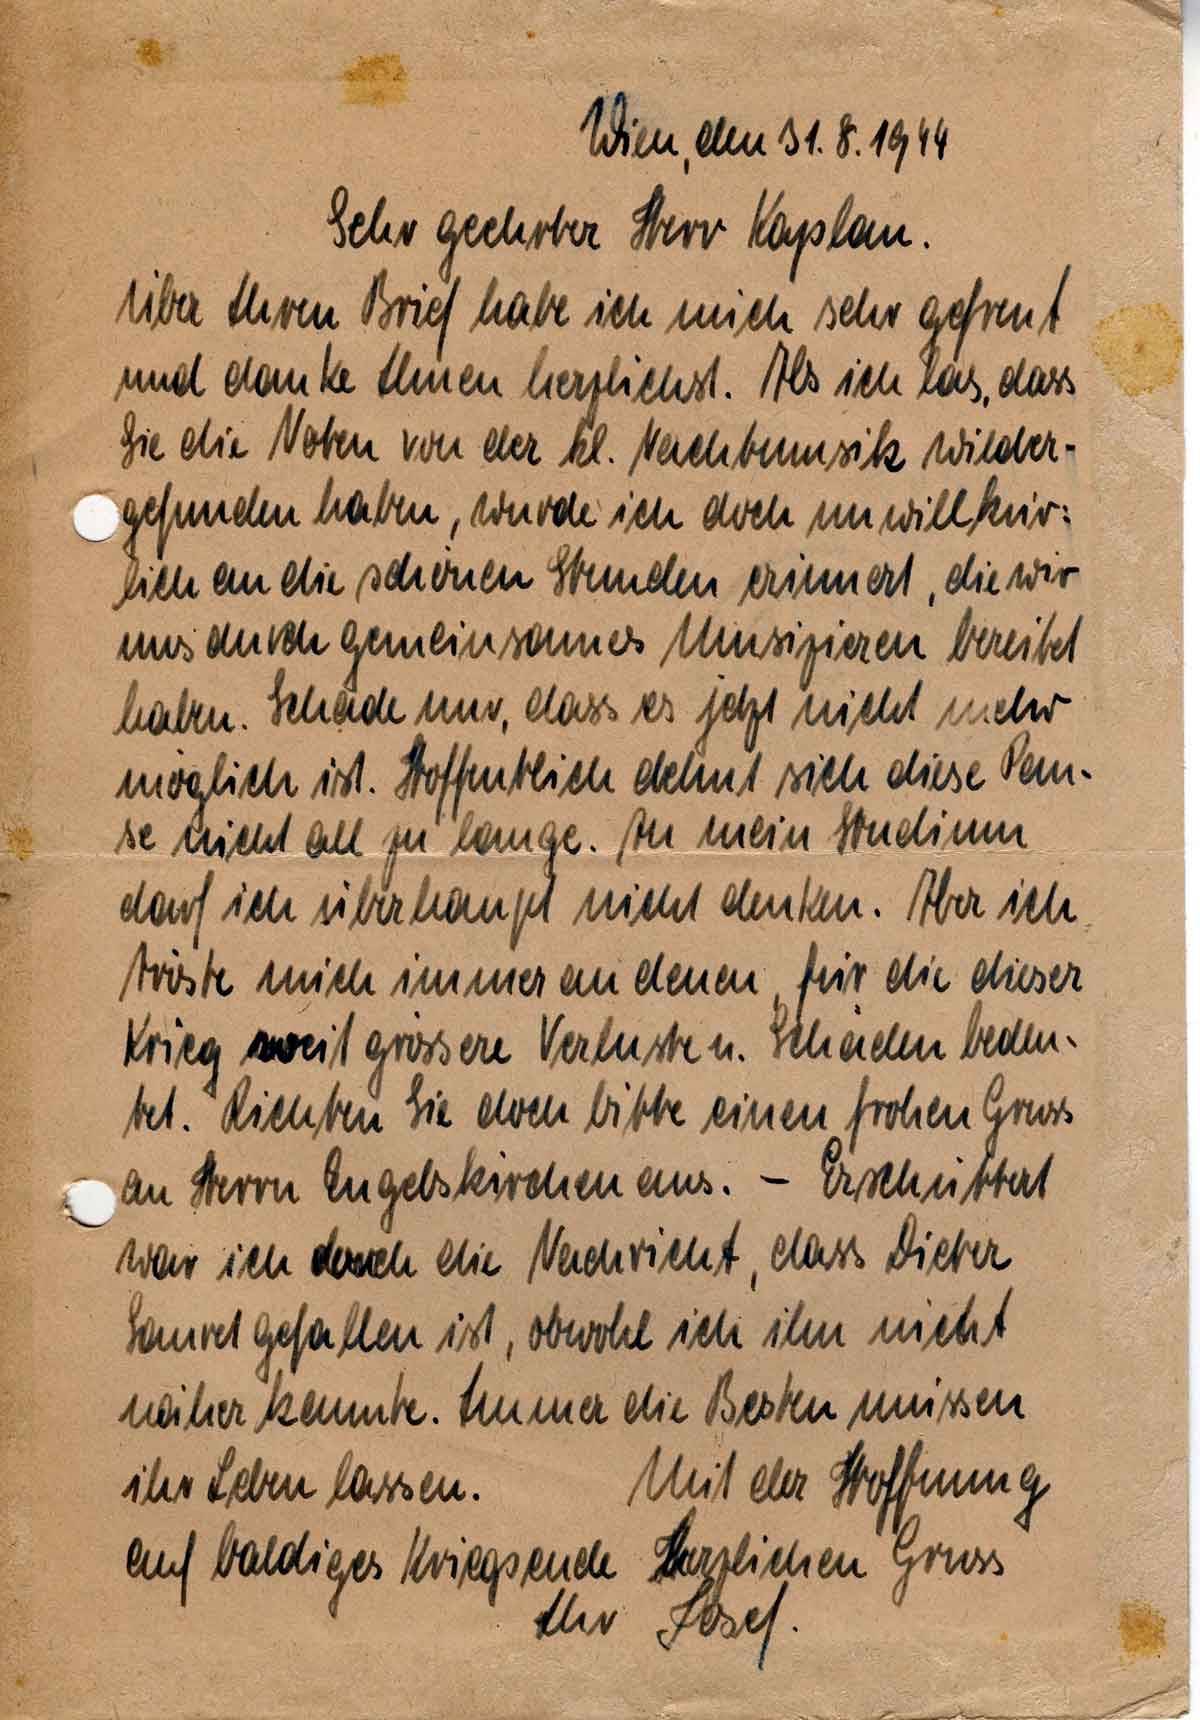 Wien, den 31.8.1944
Sehr geehrter Herr Kaplan.
Über Ihren Brief habe ich mich sehr gefreut
und danke Ihnen herzlichst. Als ich las, dass
Sie die Noten von der kl. Nachtmusik wieder-
gefunden haben, wurde ich doch unwillkür-
lich an die schönen Stunden erinnert, die wir
uns durch gemeinsames Musizieren bereitet
haben. Schade nur, dass es jetzt nicht mehr
möglich ist. Hoffentlich dehnt sich diese Pau-
se nicht all zu lange. An mein Studium
darf ich überhaupt nicht denken. Aber ich
tröste mich immer an denen, für die dieser
Krieg weit grössere Verluste u. Schäden bedeu-
tet. Richten Sie doch bitte einen frohen Gruss
an Herrn Engelskirchen aus. – Erschüttert
war ich durch die Nachricht, dass Dieter
gefallen ist, obwohl ich ihn nicht
näher kannte. Immer die Besten müssen
ihr Leben lassen. Mit der Hoffnung
auf baldiges Kriegsende Herzlichen Gruss
Ihr Josef.